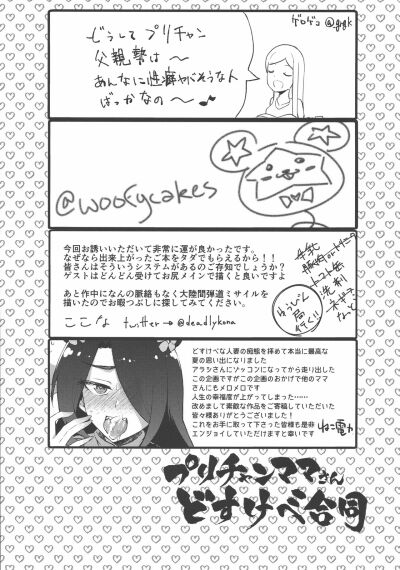 どうして プリチャン
父親勢は〜
あんなに性癖やべそうな人
ばっかなの〜♪
ゲロゲコ@grgk
@woofycakes
今回お誘いいただいて非常に運が良かったです。
なぜなら出来上がったご本をタダでもらえるから！！
皆さんはそういうシステムがあるのご存知でしょうか？
ゲストはどんどん受けてお尻メインで描くと良いですよ
あと作中になんの脈絡もなく大陸間弾道ミサイルを
描いたのでお暇な時にでも探してみてください。
ここな twitter→@deadlykona
牛乳
トマト缶
洗剤
ネギ
など
ゆうびん局
行く!!
どすけべな人妻の痴態を拝めて本当に最高な
夏の思い出になりました
アラシさんにゾッコンになってから走り出した
この企画ですがこの企画のおかげで他のママ
さんにもメロメロです
人生の幸福度が上がってしまった……
改めまして素敵な作品をご寄稿していただいた
皆々様ありがとうございました！
これをお手に取って下さった皆様も是非
エンジョイしていただけますと幸いです
ねこ電力
プリチャンママさん
どすけべ合同